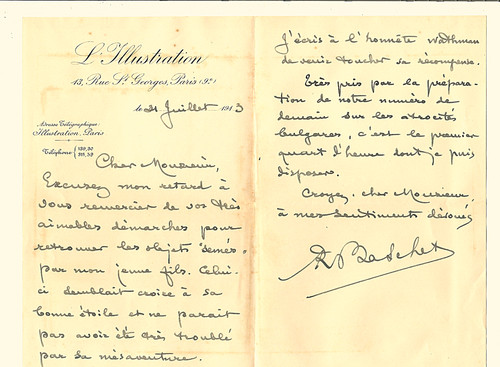 L'Illustration
13, Rue St Georges, Paris (9e)
le 31 Juillet 1913
Adresse Télégraphique:
Illustration, Paris
Téléphone
Cher Monsieur,
Excusez mon retard à
vous remercier de vos très
aimables démarches pour
retrouver les objets "semés"
par mon jeune fils. Celui-
ci semblait croire à sa
bonne étoile et ne paraît
pas avoir été très troublé
par sa mésaventure.
J'écris à l'honnête wattman
de venir toucher sa récompense.
Très pris par la prépara-
tion de notre numéro de
demain sur les atrocités
bulgares, c'est le premier
quart d'heure dont je puis
disposer.
Croyez, cher Monsieur,
à mes sentiments dévoués
R Baschet